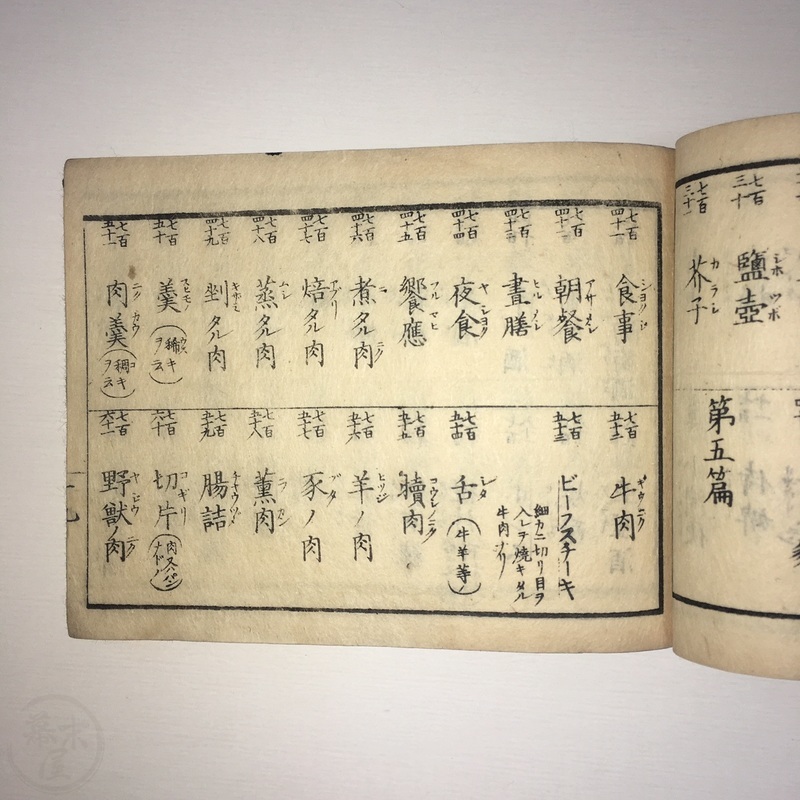 七百三十
シホツボ
鹽壺
七百三十一
カラシ
芥子
第五篇
七百四十一
シヨクジ
食事
七百四十二
アサメシ
朝餐
七百四十三
ヒルメシ
晝膳
七百四十四
ヤシヨク
夜食
七百四十五
フルマヒ
饗應
七百四十六
ニ ニク
煮タル肉
七百四十七
アブリ
焙タル肉
七百四十八
ムシ
蒸タル肉
七百四十九
キザミ
剉タル肉
七百五十
スヒモノ
羹(稀キヲ云)
ウス
七百五十一
ニクカウ
肉羹(稠キヲ云)
コ
七百五十二
ギウニク
牛肉
七百五十三
ビーフスチーキ
細カニ切リ目ヲ
入レヲ焼キタル
牛肉ナリ
七百五十四
シタ
舌(牛羊等ノ)
七百五十五
コウシノニク
犢肉
七百五十六
ヒツジ
羊ノ肉
七百五十七
ブタ
豕ノ肉
七百五十八
ラカン
薫肉
七百五十九
チヤウヅメ
腸詰
七百六十
コギリ
切片(肉又ハパンナドノ)
七百六十一
ヤジウ ニク
野獣ノ肉